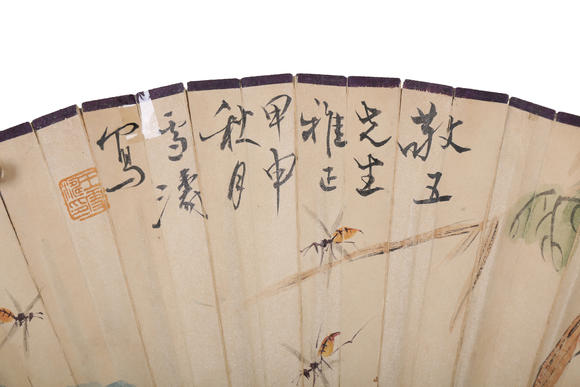 敬五
先生
雅正
甲申
秋月
雪濤
寫
王雪濤印